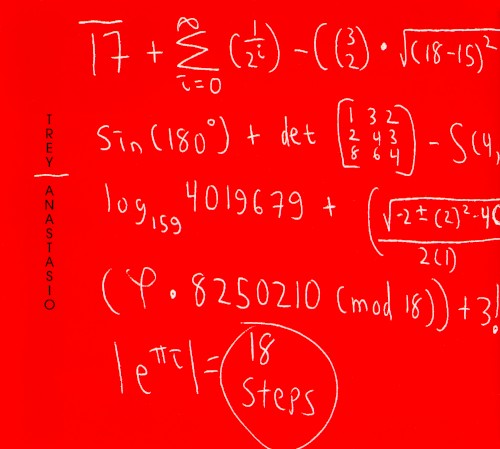 TREY ANASTASIO
17 + ∑_{i=0}^{∞} (1/2^i) - ((3 2) · √(18-15)²
sin(180°) + det [1 3 2; 2 4 3; 8 6 4] - S(4,
log₁₅₉ 4019679 + (√-2 ± (2)² - 40 / 2(1)
(φ · 8250210 (mod 18)) + 3!
|e^{πi}| = 18
steps